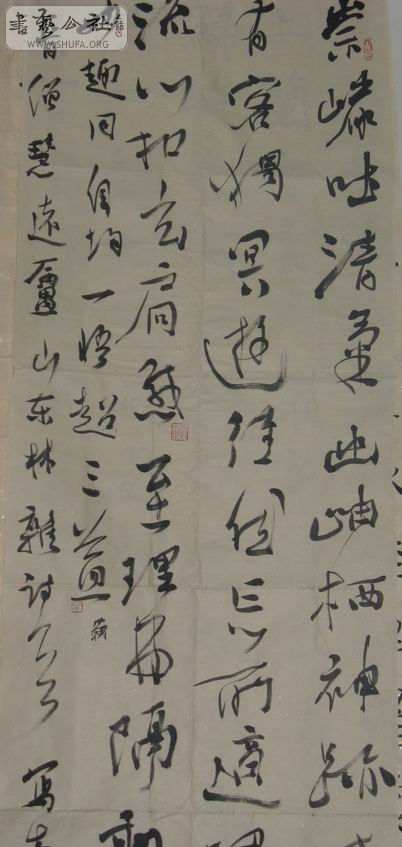 書藝公社
WWW.SHUFA.ORG
崇巖吐清氣幽岫栖神跡
有客獨冥遊徑然忘所適
流心扣玄扃感至理弗隔
趣同自均一悟超三益
晉僧慧遠廬山东林雜詩 寫